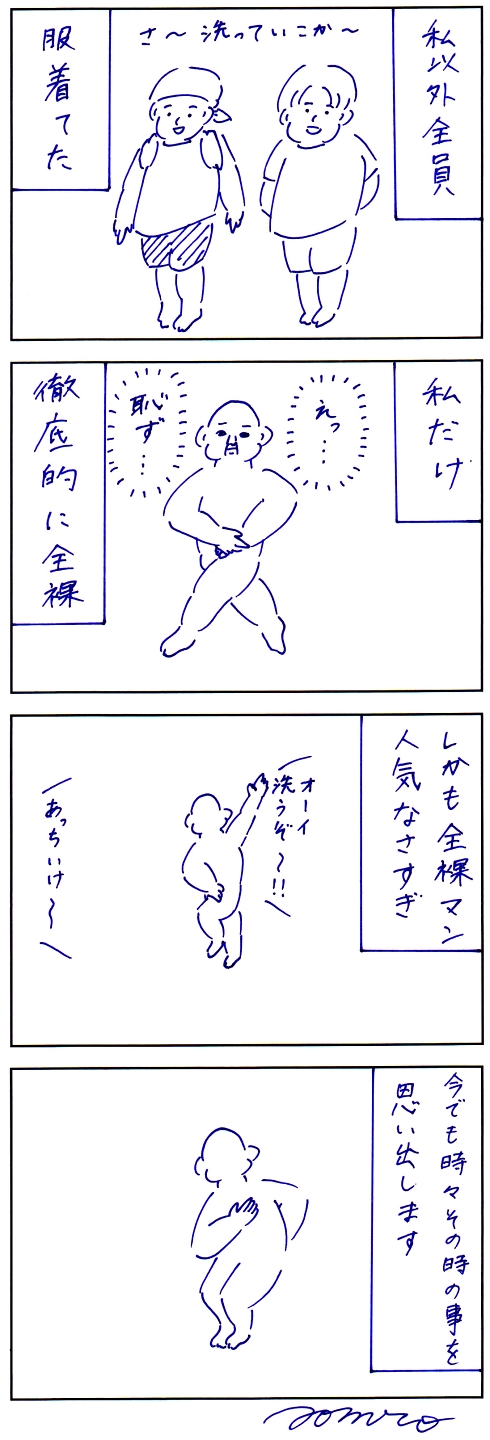 私以外全員
さ〜 洗っていこか〜
服着てた
私だけ
えっ…
恥ず…
徹底的に全裸
しかも全裸マン
人気なさすぎ
オーイ
洗うぞ〜!!
あっちいけ〜
今でも時々その時の事を
思い出します